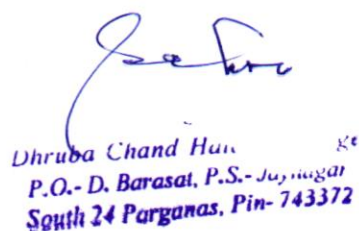 Dhruba Chand
P.O.- D. Barasat, P.S.- Jaynagar
South 24 Parganas, Pin- 743372